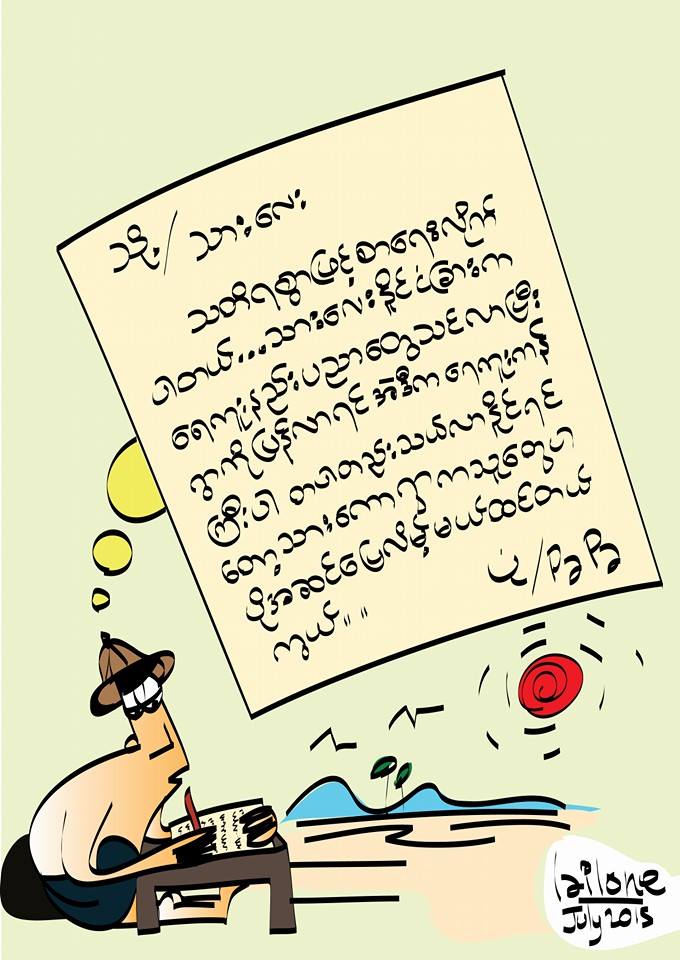 သို့/ သားလေး
သတိရစွာဖြင့်စာရေးလိုက်
ပါတယ်...သားလေးနိုင်ငံခြားက
ရေကူးနည်းပညာတွေသင်လာပြီး
ရွာကိုပြန်လာရင် အဲဒီက ရေကူးကန်
ကြီးပါ တပါတည်းသယ်လာနိုင်ရင်
တော့သားကောရွာကသူတွေပါ
ပိုအဆင်ပြေလိမ့်မယ်ထင်တယ်
ကွယ်။ ။
ပုံ/
lailone
July 2015